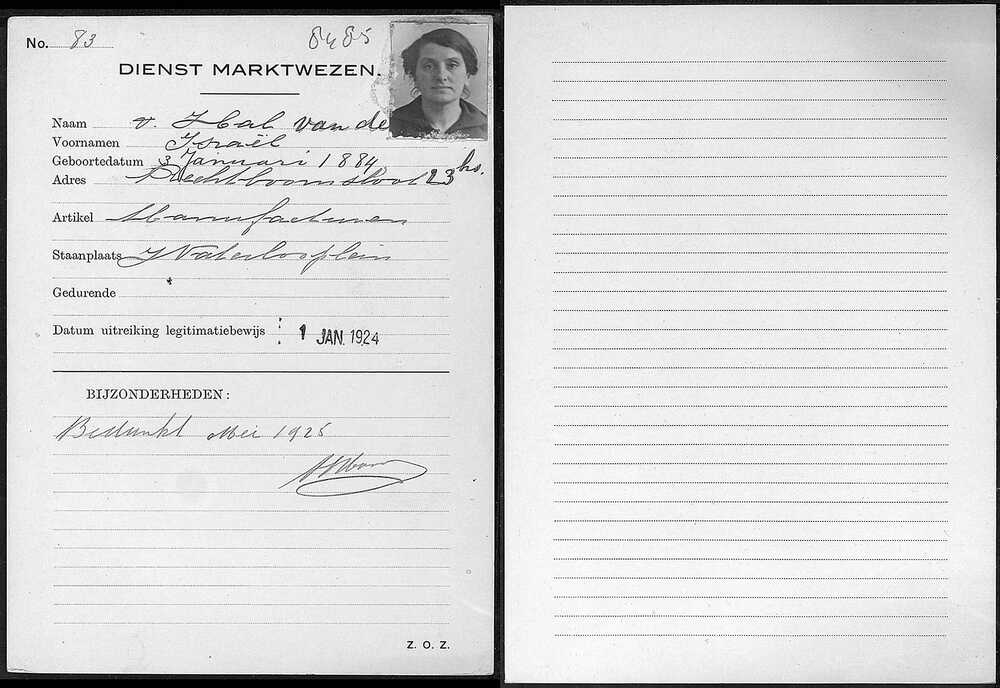 No. 83
8485
DIENST MARKTWEZEN.
Naam v. Hal van de
Voornamen Israël
Geboortedatum 3 Januari 1884
Adres Rechtboomsloot 23 hs.
Artikel Manufacturen
Staanplaats Waterlooplein
Gedurende
Datum uitreiking legitimatiebewijs 1 JAN. 1924
BIJZONDERHEDEN:
Bedankt Mei 1925
Z. O. Z.